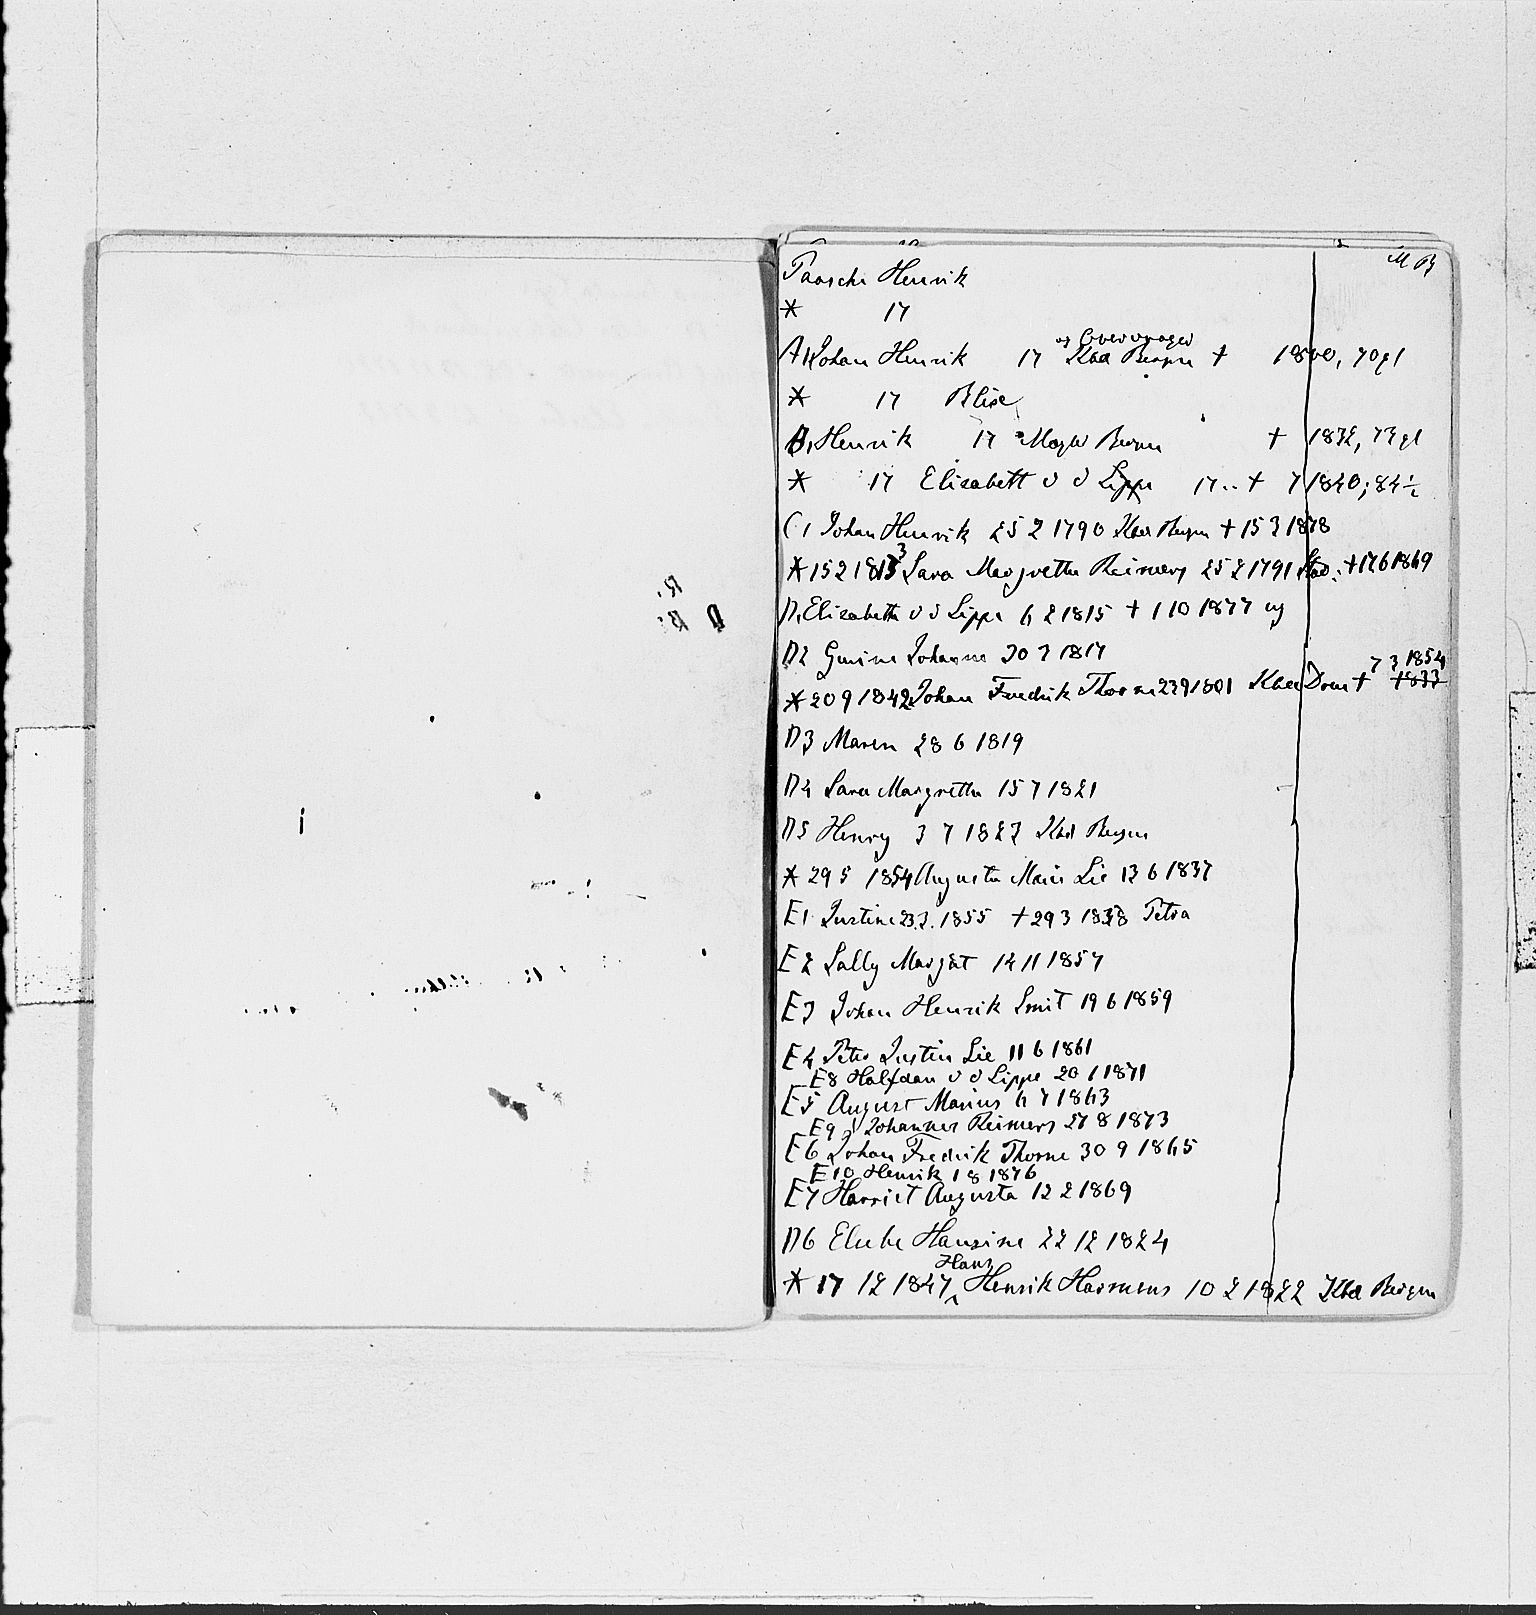 M B
Paasche Henrik
* 17
A1 Johan Henrik 17 Kbd Bergen † 1800, 70 gl
* 17 Blix
B1 Henrik 17 Mægler Bergen † 1832, 73 gl
* 17 Elisabeth v d Lippe 17.. † 7 1840; 84½
C1 Johan Henrik 25 2 1790 Kbd Bergen † 15 3 1878
* 15 2 1813 Sara Margrethe Reimers 25 2 1791 † 17 6 1869
D1 Elisabeth v d Lippe 6 2 1815 † 1 10 1877 ug
D2 Gesine Johanne 30 3 1817
7 3 1854
* 20 9 1842 Johan Fredrik Thorne 23 9 1801 Kbd Dram † 1833
D3 Maren 28 6 1819
D4 Sara Margrethe 15 7 1821
D5 Henry 3 7 1823 Kbd Bergen
* 29 5 1854 Augusta Marie Lie 13 6 1837
E1 Justine 23.3.1855 † 29 3 1858 Petra
E2 Sally Margrét 14 11 1857
E3 Johan Henrik Smit 19 6 1859
E4 Petra Justine Lie 11 6 1861
E8 Halfdan v d Lippe 20 1 1871
E5 August Marius 6 7 1863
E9 Johannes Reimers 27 8 1873
E6 Johan Fredrik Thorne 30 9 1865
E10 Henrik 1 8 1876
E7 Harriet Augusta 12 2 1869
D6 Elebe Hansine 22 12 1824
Hans
* 17 12 1847 Henrik Harmens 10 2 1822 Kbd Bergen